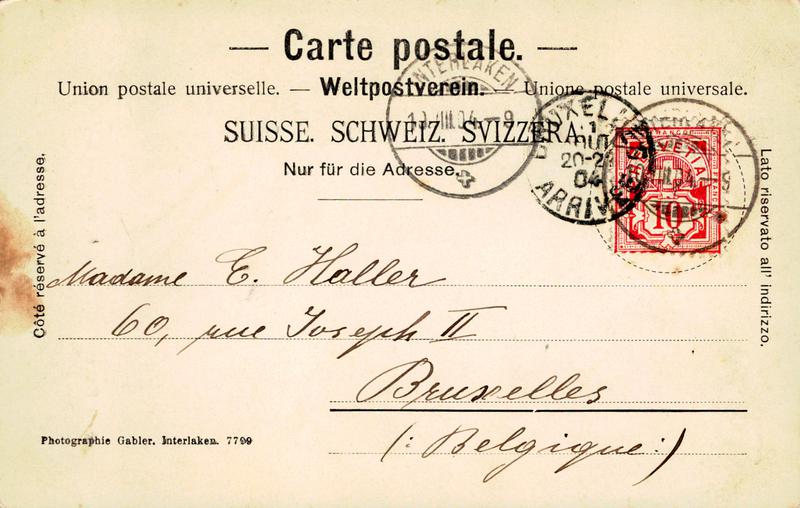 — Carte postale. —
Union postale universelle. — Weltpostverein. — Unione postale universale.
SUISSE. SCHWEIZ. SVIZZERA.
Nur für die Adresse.
Côté réservé à l'adresse.
Lato riservato all' indirizzo.
INTERLAKEN
III.04.-9
BRUXEL
1
20-2
04
ARRIVEE
HELVETIA
FRANCO
10
III.04.-9
Madame E. Haller
60, rue Joseph II
Bruxelles
(: Belgique :)
Photographie Gabler. Interlaken. 7799